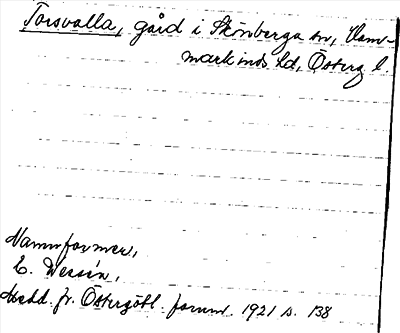 Torsvalla, gård i Skönberga sn, Ham-
markinds hd, Österg l.
Namnformer,
E. Wessén,
Medd. fr. Östergötl. fornm. 1921 s. 138